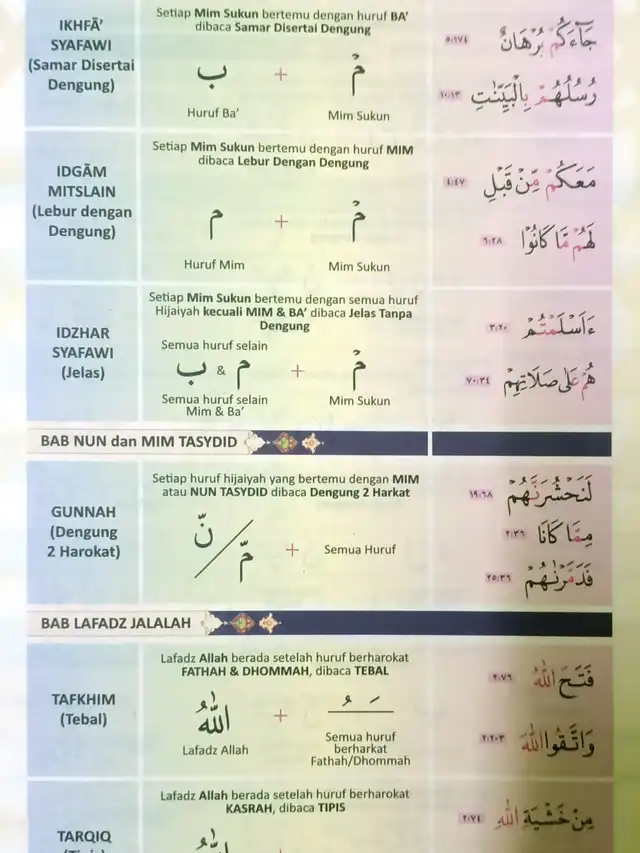 IKHFĀ’
SYAFAWI
(Samar Disertai
Dengung)
Setiap Mim Sukun bertemu dengan huruf BA’
dibaca Samar Disertai Dengung
ب + مْ
Huruf Ba’ Mim Sukun
جَآءَكُمْ بُرْهَانٌ ٤:١٧٤
رُسُلُهُمْ بِالْبَيِّنٰتِ ١٠:١٣
IDGĀM
MITSLAIN
(Lebur dengan
Dengung)
Setiap Mim Sukun bertemu dengan huruf MIM
dibaca Lebur Dengan Dengung
م + مْ
Huruf Mim Mim Sukun
مَعَكُمْ مِّنْ قَبْلِ ٤:٤٧
لَهُمْ مَّا كَانُوْا ٦:٢٨
IDZHAR
SYAFAWI
(Jelas)
Setiap Mim Sukun bertemu dengan semua huruf
Hijaiyah kecuali MIM & BA’ dibaca Jelas Tanpa
Dengung
Semua huruf selain
ب & م + مْ
Semua huruf selain
Mim & Ba’
Mim Sukun
ءَاَسْلَمْتُمْ ٣:٢٠
هُمْ عَلٰى صَلَاتِهِمْ ٧٠:٣٤
BAB NUN dan MIM TASYDID
GUNNAH
(Dengung
2 Harokat)
Setiap huruf hijaiyah yang bertemu dengan MIM
atau NUN TASYDID dibaca Dengung 2 Harkat
نّ / مّ + Semua Huruf
لَنَحْشُرَنَّهُمْ ١٩:٦٨
مِمَّا كَانَا ٢:٣٦
فَدَمَّرْنٰهُمْ ٢٥:٣٦
BAB LAFADZ JALALAH
TAFKHIM
(Tebal)
Lafadz Allah berada setelah huruf berharokat
FATHAH & DHOMMAH, dibaca TEBAL
اللّٰهُ + ـَـُ
Lafadz Allah
Semua huruf
berharkat
Fathah/Dhommah
فَتَحَ اللّٰهُ ٢:٧٦
وَاتَّقُوا اللّٰهَ ٢:٢٠٣
TARQIQ
Lafadz Allah berada setelah huruf berharokat
KASRAH, dibaca TIPIS
مِنْ خَشْيَةِ اللّٰهِ ٢:٧٤